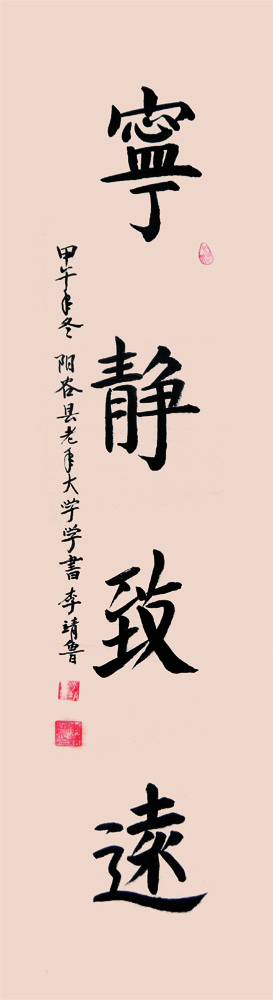 寧静致遠
甲午年冬 阳谷县老年大学学書 李靖鲁